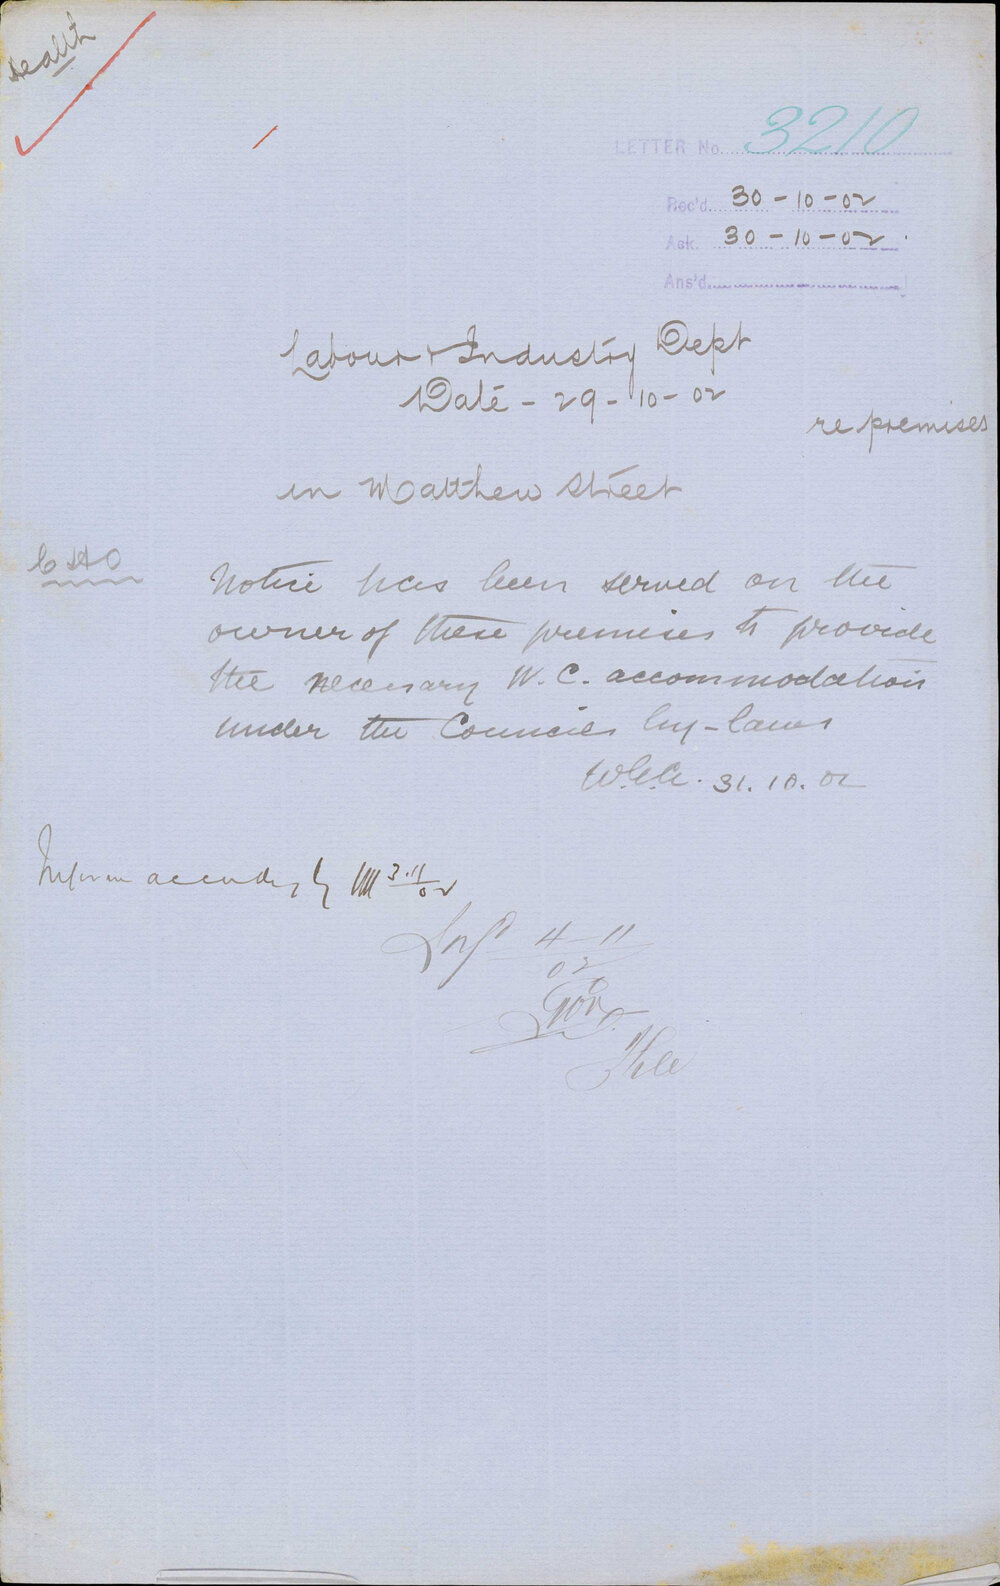 Health
LETTER No. 3210
Rec'd. 30-10-02
Ack. 30-10-02
Ans'd.
Labour & Industry Dept
Date - 29-10-02
re premises
in Matthew Street
CHO
Notice has been served on the
owner of these premises to provide
the necessary W.C. accommodation
under the Councils by-laws
31.10.02
Inform accordingly 3.11/02
4-11
02